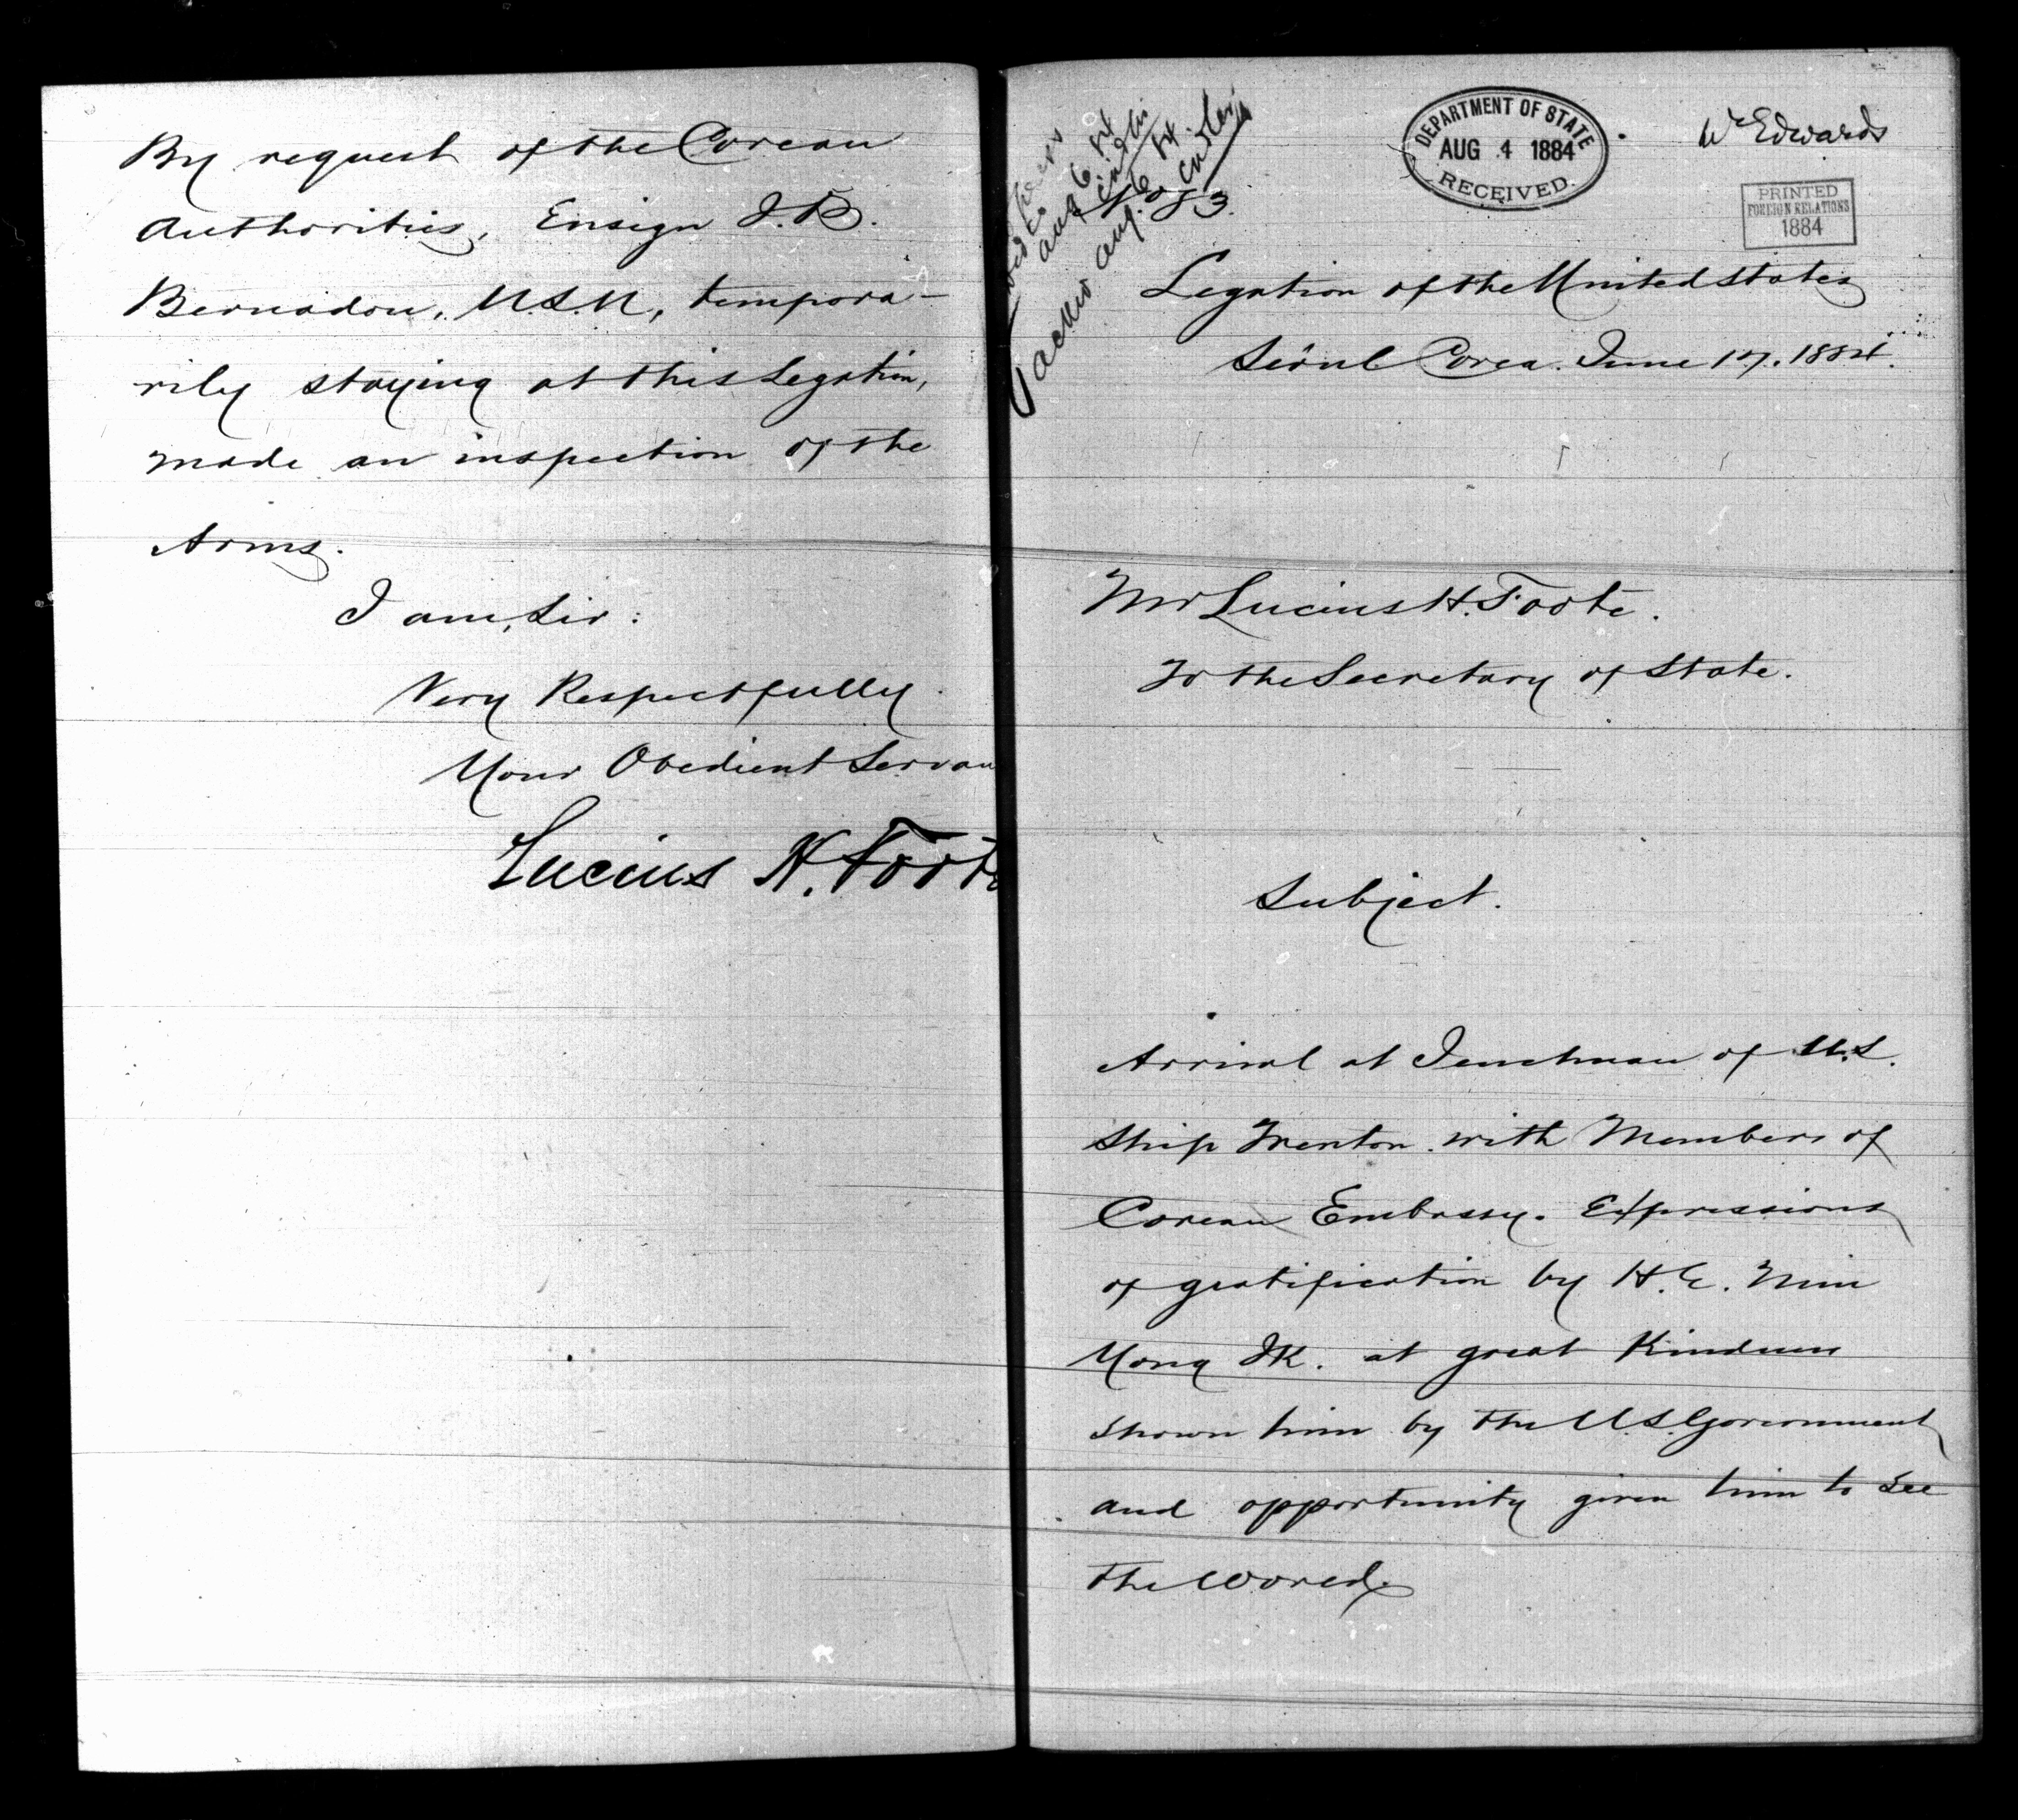 By request of the Corean
Authorities, Ensign J. B.
Bernadou, U.S.N, tempora-
rily staying at this Legation,
made an inspection of the
Arms.
I am, Sir:
Very Respectfully.
Your Obedient Servan
Lucius H. Foote
DEPARTMENT OF STATE
AUG 4 1884
RECEIVED.
Mr Edwards
PRINTED
FOREIGN RELATIONS
1884
Aug 6 84
Ackd Aug. 6 84
No 83.
Legation of the United States
Seöul Corea. June 17. 1884.
Mr Lucius H. Foote.
To the Secretary of State.
Subject.
Arrival at Jenchuan of U.S.
Ship Trenton with Members of
Corean Embassy. Expressions
of gratification by H. E. Min
Yong Ik. at great Kindness
shown him by the U.S. Government
and opportunity given him to see
the world.